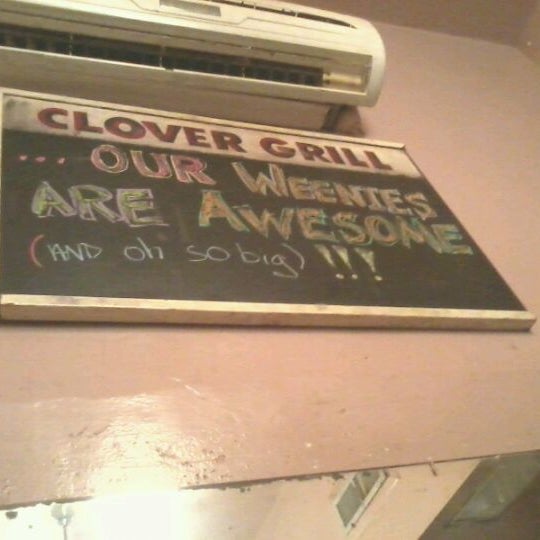 CLOVER GRILL
... OUR WEENIES
ARE AWESOME
(AND oh so big) !!!